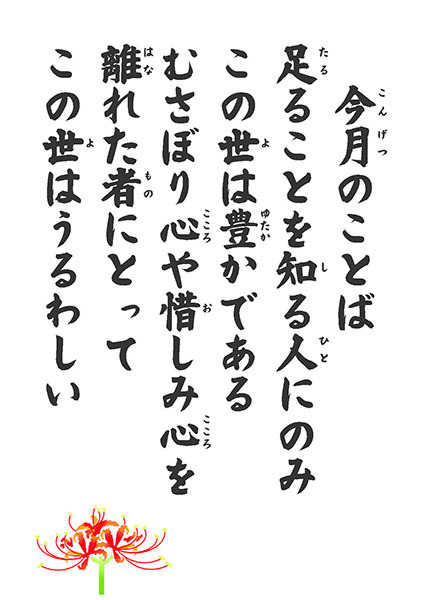 今月のことば
足ることを知る人にのみ
この世は豊かである
むさぼり心や惜しみ心を
離れた者にとって
この世はうるわしい